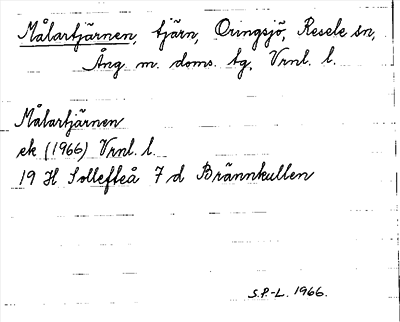 Målartjärnen, tjärn, Oringsjö, Resele sn,
Ång m. doms. tg, Vrnl. l.
Målartjärnen
ek (1966) Vrnl. l.
19 H Sollefteå 7 d Brännkullen
S.P.-L. 1966.